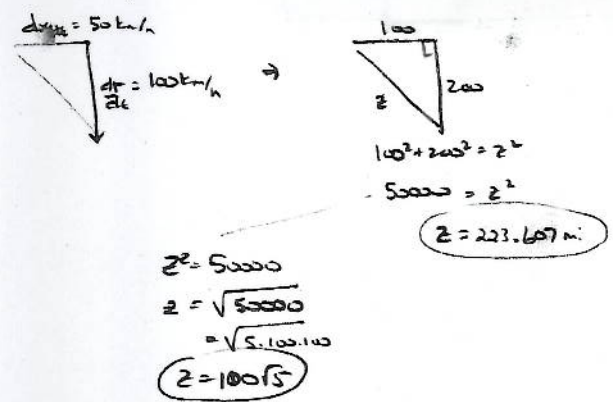 = 50 km/h
= 100 km/h
⇒
100
200
z
100² + 200² = z²
50000 = z²
z = 223.607 mi
z² = 50000
z = √50000
= √5.100.100
z = 100√5